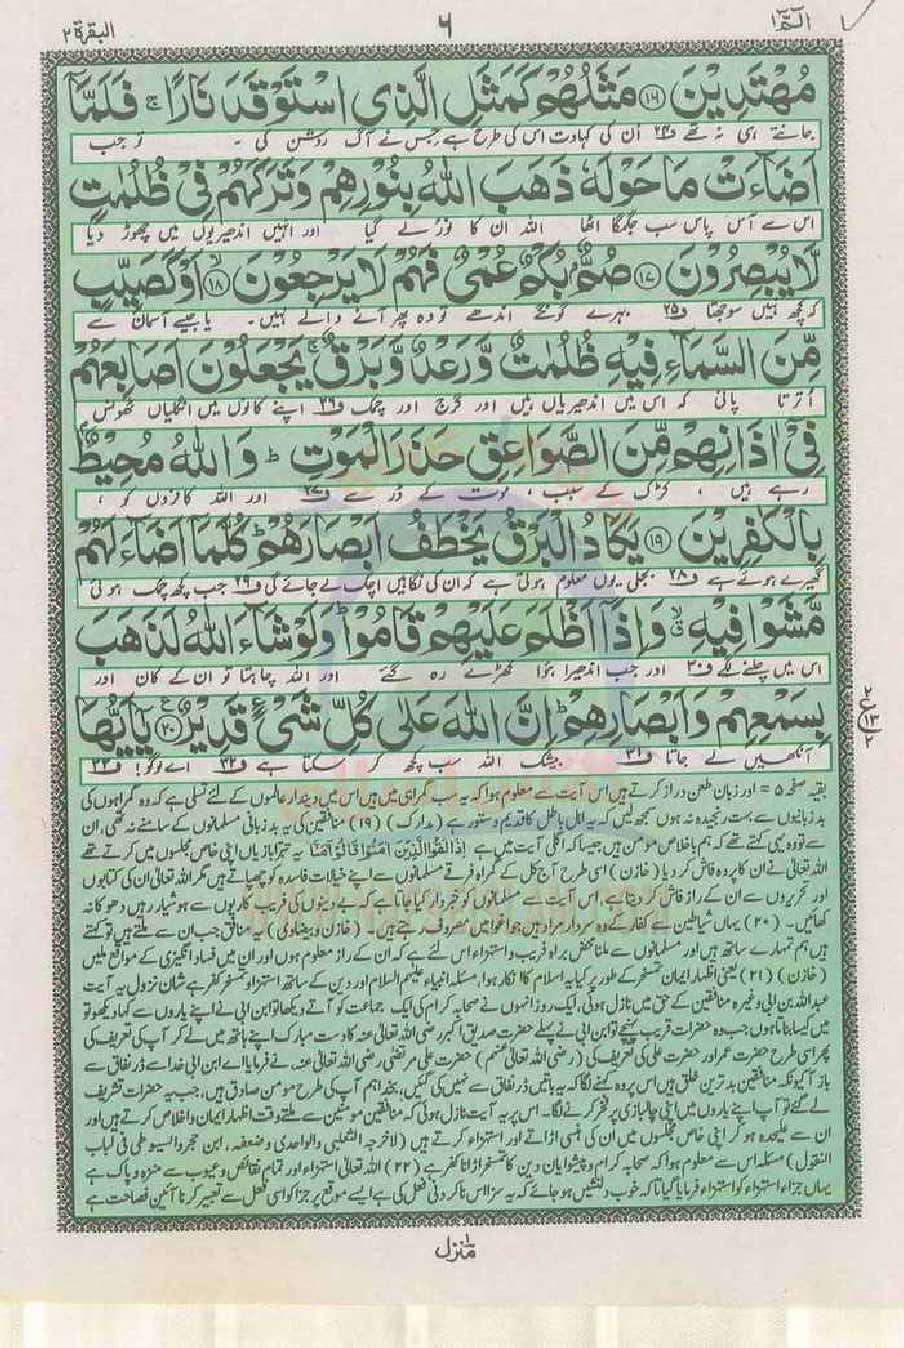 الٓمّٓ ١
٦
البقرة ٢
مُهْتَدِيْنَ ﴿۱۶﴾ مَثَلُهُمْ كَمَثَلِ الَّذِى اسْتَوْقَدَ نَارًا ۚ فَلَمَّاۤ
جانتے ہی نہ تھے ف۲۴ ان کی کہاوت اس کی طرح ہے جس نے آگ روشن کی ۔ تو جب
اَضَآءَتْ مَا حَوْلَهٗ ذَهَبَ اللّٰهُ بِنُوْرِهِمْ وَتَرَكَهُمْ فِىْ ظُلُمٰتٍ
اس سے آس پاس سب جگمگا اٹھا اللہ ان کا نور لے گیا اور انہیں اندھیریوں میں چھوڑ دیا
لَّا يُبْصِرُوْنَ ﴿۱۷﴾ صُمٌّۢ بُكْمٌ عُمْىٌ فَهُمْ لَا يَرْجِعُوْنَ ۙ﴿۱۸﴾ اَوْ كَصَيِّبٍ
کہ کچھ نہیں سوجھتا ف۲۵ بہرے گونگے اندھے تو وہ پھر آنے والے نہیں ۔ یا جیسے آسمان سے
مِّنَ السَّمَآءِ فِيْهِ ظُلُمٰتٌ وَّرَعْدٌ وَّبَرْقٌ ۚ يَجْعَلُوْنَ اَصَابِعَهُمْ
اترتا پانی کہ اس میں اندھیریاں ہیں اور گرج اور چمک ف۲۶ اپنے کانوں میں انگلیاں ٹھونس
فِىْۤ اٰذَانِهِمْ مِّنَ الصَّوَاعِقِ حَذَرَ الْمَوْتِ ؕ وَاللّٰهُ مُحِيْطٌۢ
رہے ہیں ، کڑک کے سبب ، موت کے ڈر سے ف۲۷ اور اللہ کافروں کو ،
بِالْكٰفِرِيْنَ ﴿۱۹﴾ يَكَادُ الْبَرْقُ يَخْطَفُ اَبْصَارَهُمْ ؕ كُلَّمَاۤ اَضَآءَ لَهُمْ
گھیرے ہوئے ہے ف۲۸ بجلی یوں معلوم ہوتی ہے کہ ان کی نگاہیں اچک لے جائے گی ف۲۹ جب کچھ چمک ہوئی
مَّشَوْا فِيْهِ ۙ وَاِذَاۤ اَظْلَمَ عَلَيْهِمْ قَامُوْا ؕ وَلَوْ شَآءَ اللّٰهُ لَذَهَبَ
اس میں چلنے لگے ف۳۰ اور جب اندھیرا ہوا کھڑے رہ گئے اور اللہ چاہتا تو ان کے کان اور
بِسَمْعِهِمْ وَاَبْصَارِهِمْ ؕ اِنَّ اللّٰهَ عَلٰى كُلِّ شَىْءٍ قَدِيْرٌ ﴿۲۰﴾ يٰۤاَيُّهَا
آنکھیں لے جاتا ف۳۱ بیشک اللہ سب کچھ کر سکتا ہے ف۳۲ اے لوگو! ف۳۳
بقیہ صفحہ ۵ = اور زبان طعن دراز کرتے ہیں اس آیت سے معلوم ہوا کہ یہ سب گمراہی میں ہیں اس میں دیندار عالموں کے لئے تسلی ہے کہ وہ گمراہوں کی
بدزبانیوں سے بہت رنجیدہ نہ ہوں سمجھ لیں کہ یہ اہل باطل کا قدیم دستور ہے (مدارک) (۱۹) منافقین کی یہ بدزبانی مسلمانوں کے سامنے نہ تھی، ان
سے تو وہ یہی کہتے تھے کہ ہم باخلاص مومن ہیں جیسا کہ اگلی آیت میں ہے اِذَا لَقُوا الَّذِيْنَ اٰمَنُوْا قَالُوْۤا اٰمَنَّا یہ تبرا بازیاں اپنی خاص مجلسوں میں کرتے تھے
اللہ تعالیٰ نے ان کا پردہ فاش کر دیا (خازن) اسی طرح آج کل کے گمراہ فرقے مسلمانوں سے اپنے خیالات فاسدہ کو چھپاتے ہیں مگر اللہ تعالیٰ ان کی کتابوں
اور تحریروں سے ان کے راز فاش کر دیتا ہے، اس آیت سے مسلمانوں کو خبردار کیا جاتا ہے کہ بے دینوں کی فریب کاریوں سے ہوشیار رہیں دھوکا نہ
کھائیں۔ (۲۰) یہاں شیاطین سے کفار کے وہ سردار مراد ہیں جو اغوا میں مصروف رہتے ہیں۔ (خازن و بیضاوی) یہ منافق جب ان سے ملتے ہیں تو کہتے
ہیں ہم تمہارے ساتھ ہیں اور مسلمانوں سے ملنا محض براہ فریب و استہزاء اس لئے ہے کہ ان کے راز معلوم ہوں اور ان میں فساد انگیزی کے مواقع ملیں
(خازن) (۲۱) یعنی اظہار ایمان تمسخر کے طور پر کیا یہ اسلام کا انکار ہوا، مسئلہ انبیاء علیہم السلام اور دین کے ساتھ استہزاء و تمسخر کفر ہے شان نزول یہ آیت
عبداللہ بن ابی وغیرہ منافقین کے حق میں نازل ہوئی، ایک روز انہوں نے صحابہ کرام کی ایک جماعت کو آتے دیکھا تو ابن ابی نے اپنے یاروں سے کہا دیکھو تو
میں کیسا بناتا ہوں جب وہ حضرات قریب پہنچے تو ابن ابی نے پہلے حضرت صدیق اکبر رضی اللہ تعالیٰ عنہ کا دست مبارک اپنے ہاتھ میں لے کر آپ کی تعریف کی
پھر اسی طرح حضرت عمر اور حضرت علی کی تعریف کی (رضی اللہ تعالیٰ عنہم) حضرت علی مرتضی رضی اللہ تعالیٰ عنہ نے فرمایا اے ابن ابی خدا سے ڈر نفاق سے
باز آ کیونکہ منافقین بدترین خلق ہیں اس پر وہ کہنے لگا کہ یہ باتیں نفاق سے نہیں کی گئیں، بخدا ہم آپ کی طرح مومن صادق ہیں، جب یہ حضرات تشریف
لے گئے تو آپ اپنے یاروں میں اپنی چالبازی پر فخر کرنے لگا۔ اس پر یہ آیت نازل ہوئی کہ منافقین مومنین سے ملتے وقت اظہار ایمان و اخلاص کرتے ہیں اور
ان سے علیحدہ ہو کر اپنی خاص مجلسوں میں ان کی ہنسی اڑاتے اور استہزاء کرتے ہیں (اخرجہ الثعلبی والواحدی وضعفہ، ابن حجر والسیوطی فی لباب
النقول) مسئلہ اس سے معلوم ہوا کہ صحابہ کرام و پیشوایان دین کا تمسخر اڑانا کفر ہے (۲۲) اللہ تعالیٰ استہزاء اور تمام نقائص و عیوب سے منزہ و پاک ہے
یہاں جزاء استہزاء کو استہزاء فرمایا گیا تاکہ خوب دلنشین ہو جائے کہ یہ سزا اس ناکردنی فعل کی ہے ایسے موقع پر جزا کو اسی فعل سے تعبیر کرنا آئین فصاحت ہے
منزل ١